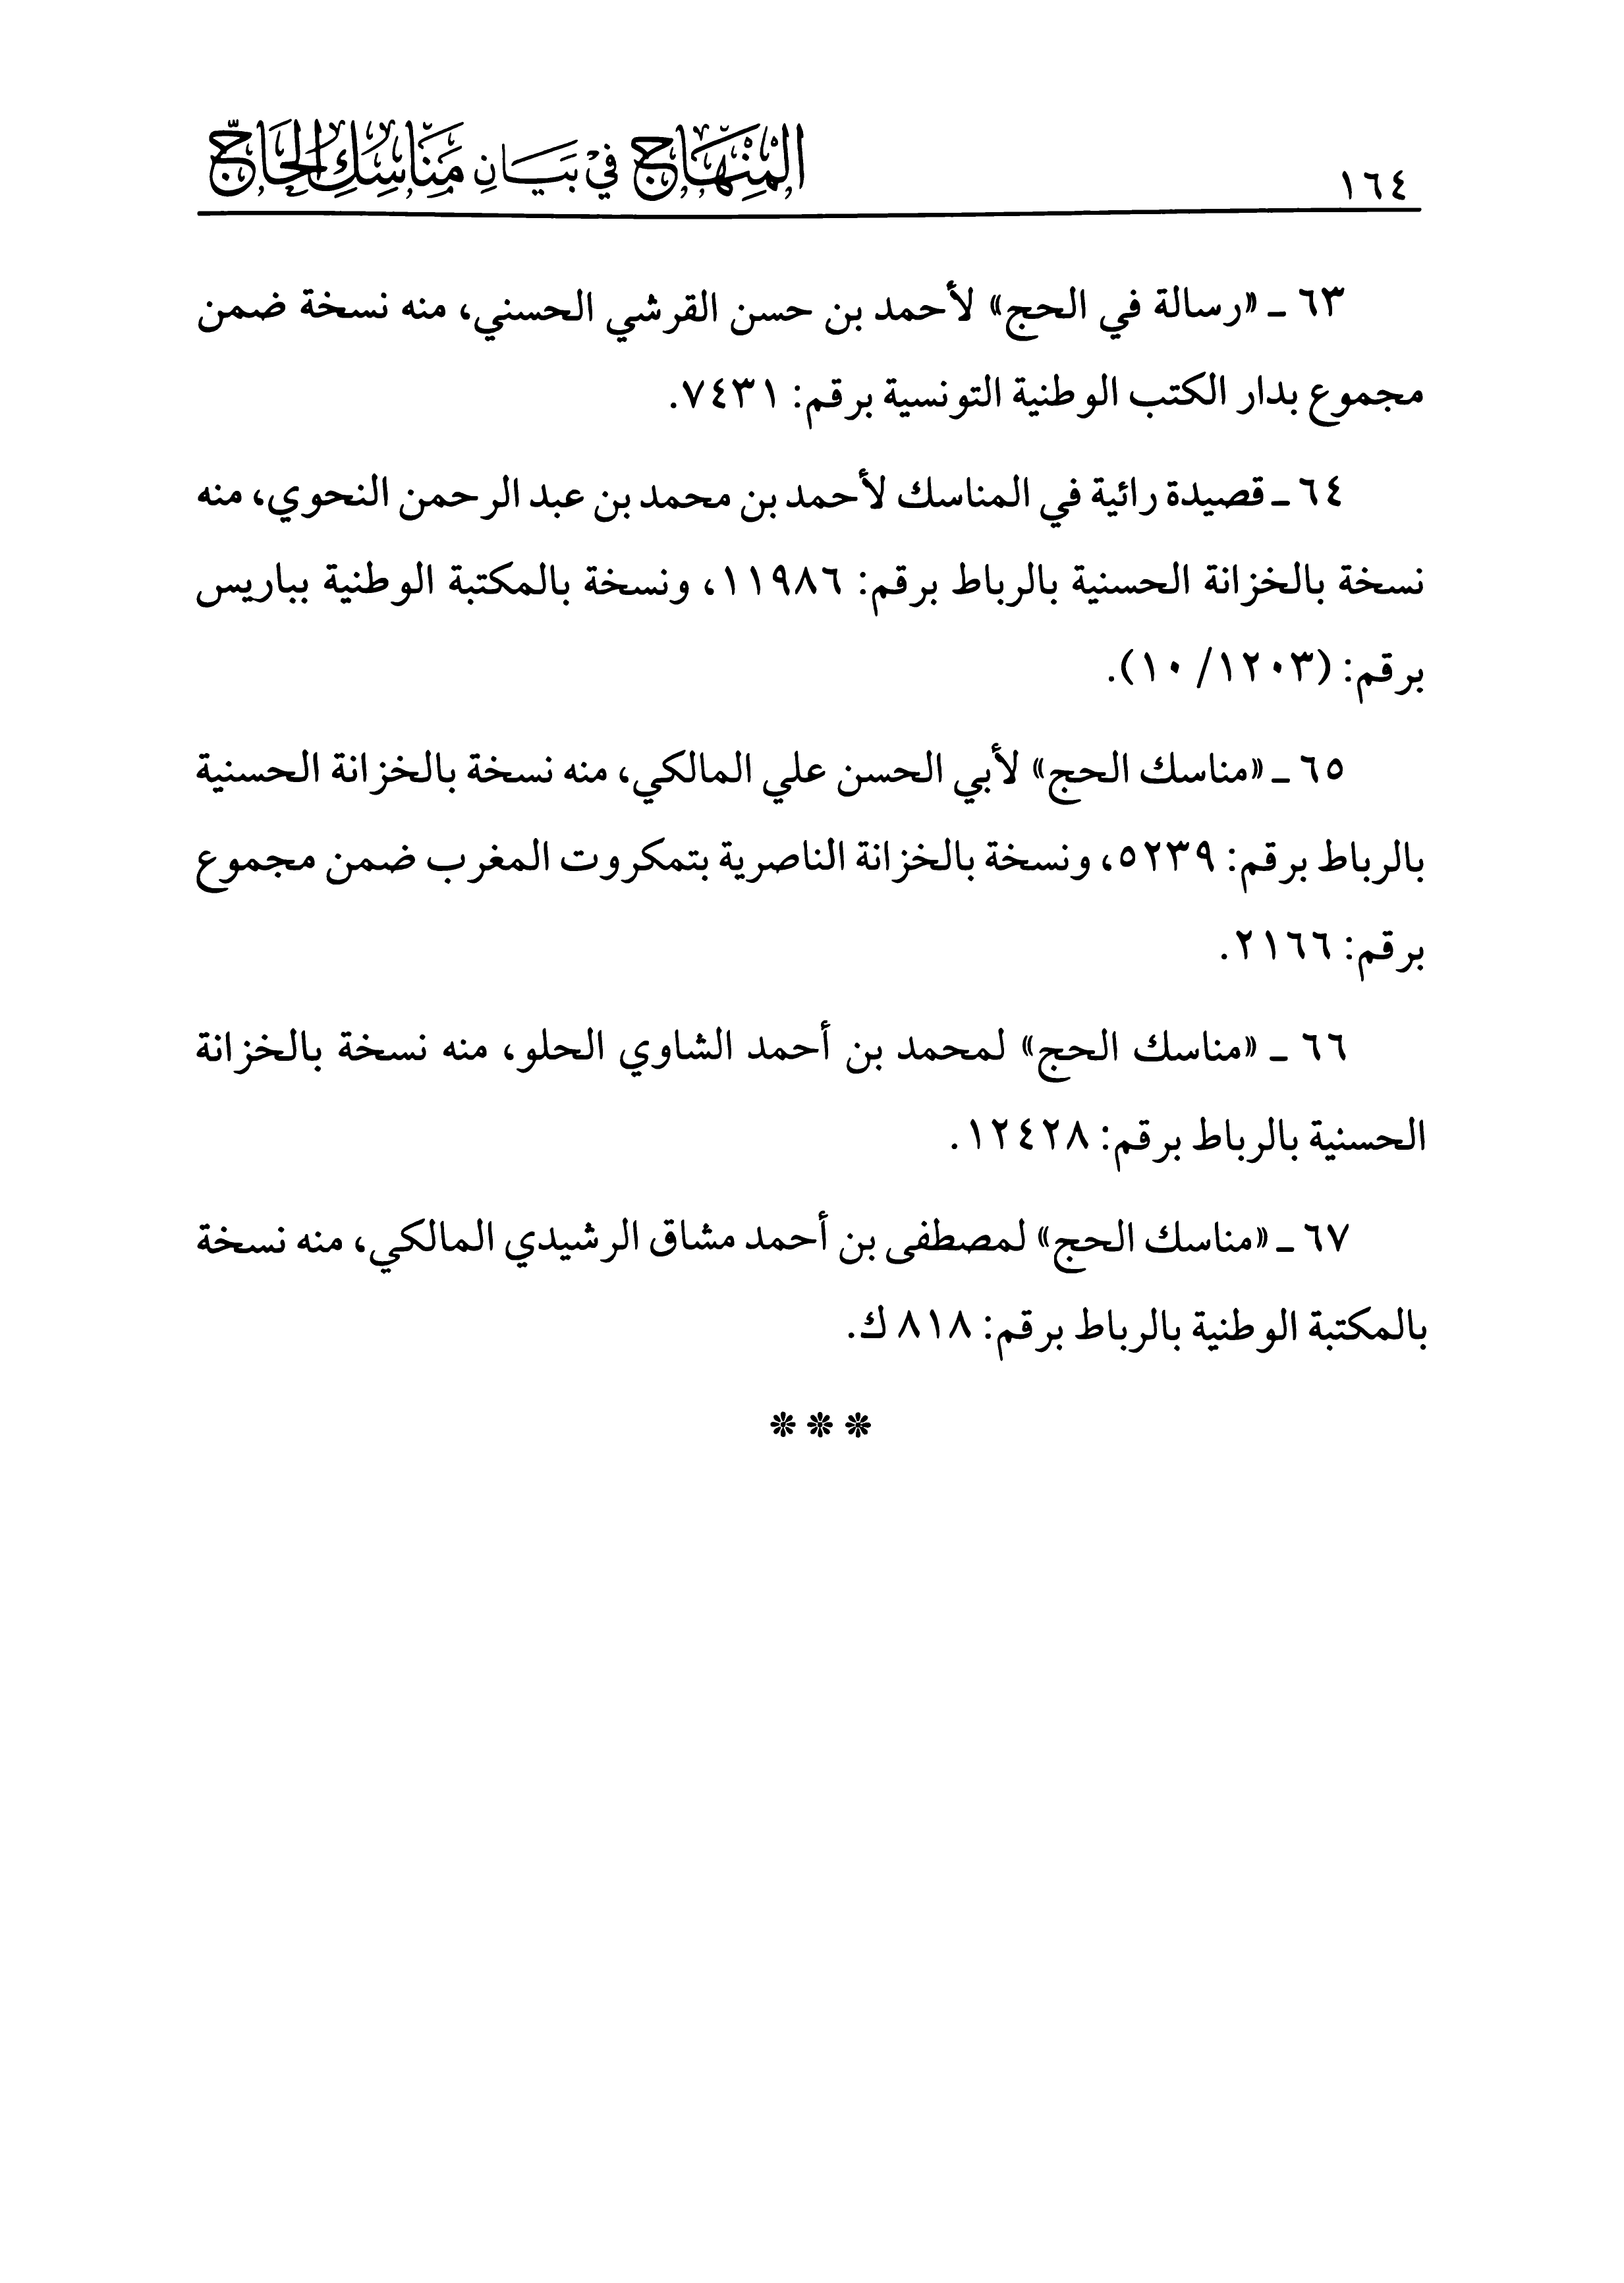 ١٦٤
المِنْهَاج في بَيَانِ مَنَاسِكِ الحَاجّ
٦٣ ـ «رسالة في الحج» لأحمد بن حسن القرشي الحسني، منه نسخة ضمن
مجموع بدار الكتب الوطنية التونسية برقم: ٧٤٣١.
٦٤ ـ قصيدة رائية في المناسك لأحمد بن محمد بن عبد الرحمن النحوي، منه
نسخة بالخزانة الحسنية بالرباط برقم: ١١٩٨٦، ونسخة بالمكتبة الوطنية بباريس
برقم: (١٢٠٣/ ١٠).
٦٥ ـ «مناسك الحج» لأبي الحسن علي المالكي، منه نسخة بالخزانة الحسنية
بالرباط برقم: ٥٢٣٩، ونسخة بالخزانة الناصرية بتمكروت المغرب ضمن مجموع
برقم: ٢١٦٦.
٦٦ ـ «مناسك الحج» لمحمد بن أحمد الشاوي الحلو، منه نسخة بالخزانة
الحسنية بالرباط برقم: ١٢٤٢٨.
٦٧ ـ «مناسك الحج» لمصطفى بن أحمد مشاق الرشيدي المالكي، منه نسخة
بالمكتبة الوطنية بالرباط برقم: ٨١٨ ك.
***